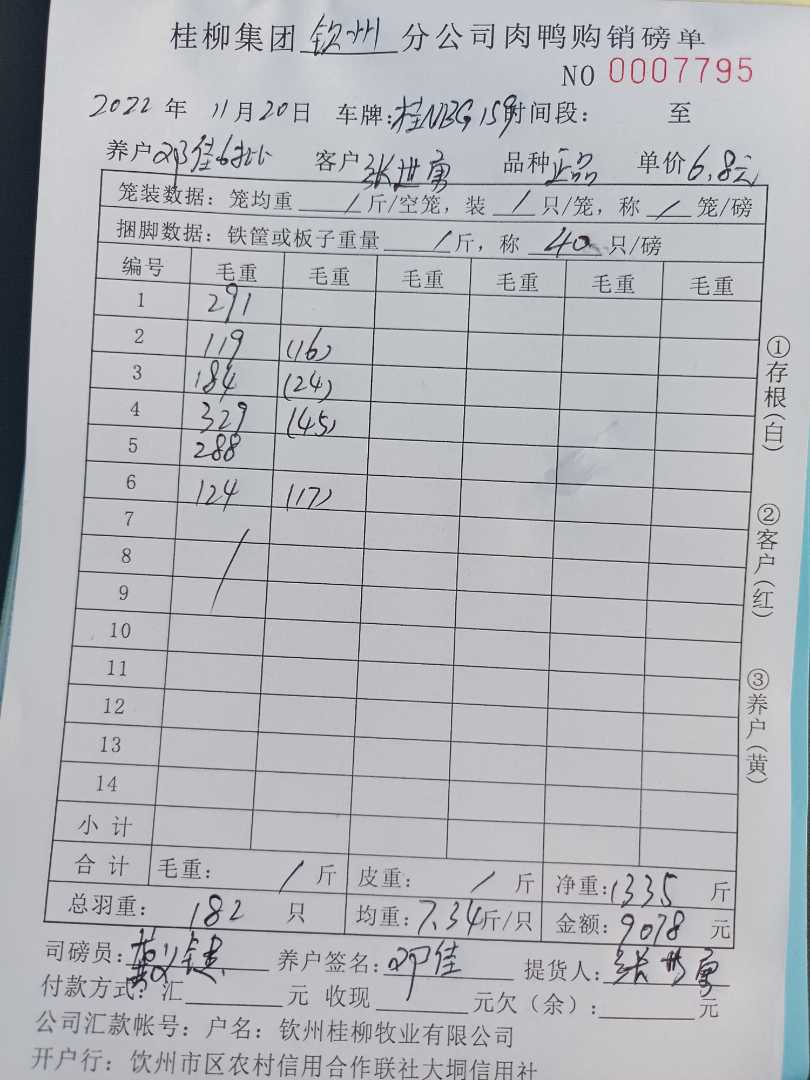 桂柳集团 钦州 分公司肉鸭购销磅单
NO 0007795
2022 年 11月20日 车牌:桂NBG159 时间段: 至
养户 邓佳6批 客户 张世勇 品种 正品 单价 6.8元
笼装数据: 笼均重 / 斤/空笼, 装 / 只/笼, 称 / 笼/磅
捆脚数据: 铁筐或板子重量 / 斤, 称 40 只/磅
编号 毛重 毛重 毛重 毛重 毛重 毛重
1 291
2 119 (16)
3 184 (24)
4 329 (45)
5 288
6 124 (17)
7
8 /
9
10
11
12
13
14
小 计
合 计 毛重: / 斤 皮重: / 斤 净重: 1335 斤
总羽重: 182 只 均重: 7.34 斤/只 金额: 9078 元
司磅员: 养户签名: 邓佳 提货人: 张世勇
付款方式: 汇 元 收现 元欠(余): 元
公司汇款帐号: 户名: 钦州桂柳牧业有限公司
开户行: 钦州市区农村信用合作联社大垌信用社
①存根(白)
②客户(红)
③养户(黄)